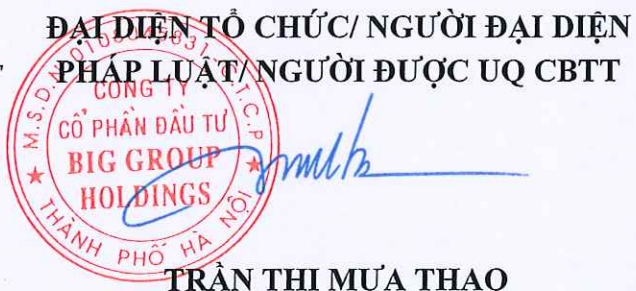 ĐẠI DIỆN TỔ CHỨC/ NGƯỜI ĐẠI DIỆN
PHÁP LUẬT/ NGƯỜI ĐƯỢC UQ CBTT
M.S.D.N C.T.C.P
CÔNG TY
CỔ PHẦN ĐẦU TƯ
BIG GROUP
HOLDINGS
THÀNH PHỐ HÀ NỘI
TRẦN THI MƯA THAO